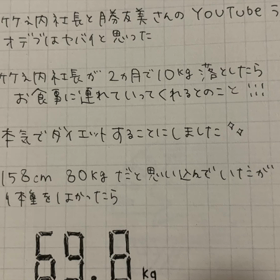 竹之内社長と勝友美さんのYOUTUBE う
オデブはヤバイと思った
竹之内社長が2ヵ月で10kg落としたら
お食事に連れていってくれるとのこと!!!
本気でダイエットすることにしました
158cm 80kgだと思い込んでいたが
体重をはかったら
69.8 kg